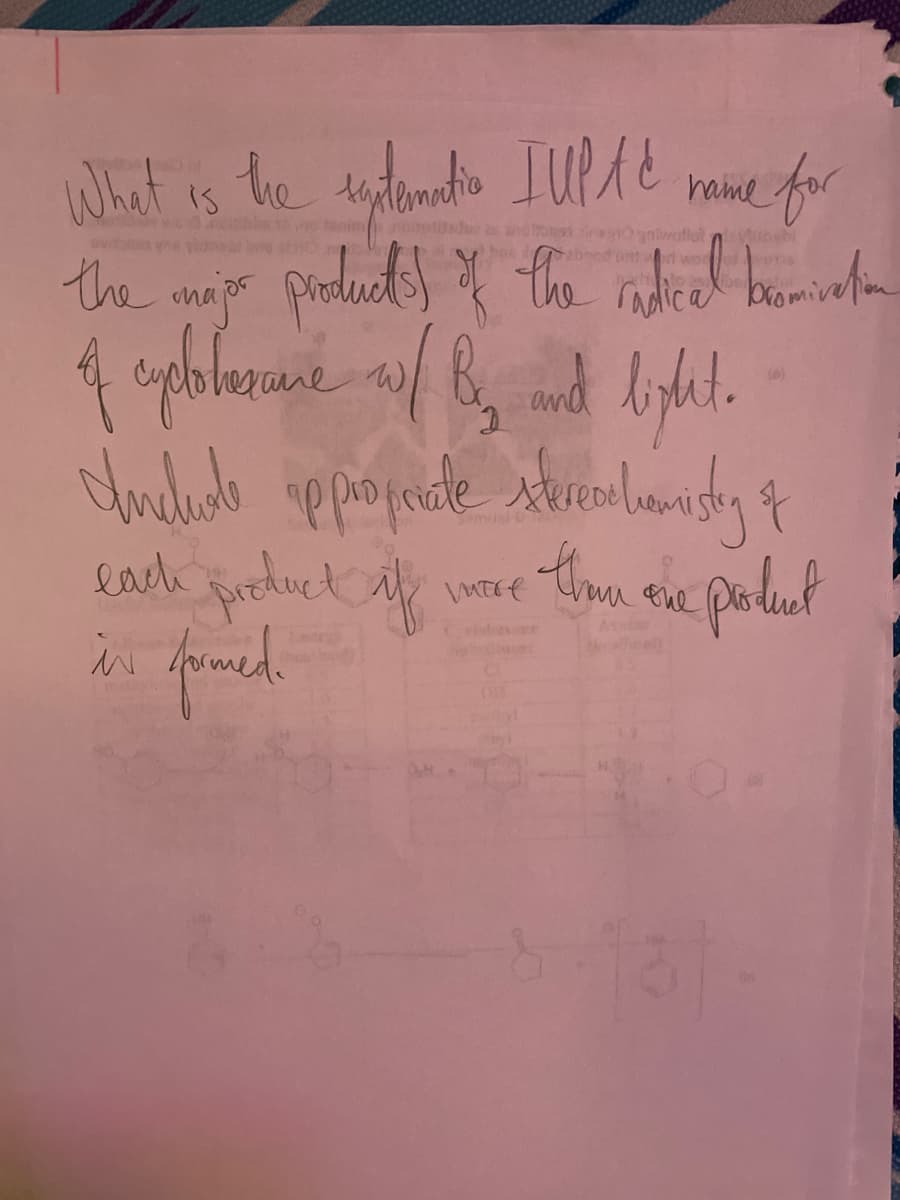 What is the systematic IUPAC name for
the major product(s) of the radical bromination
of cyclohexane w/ Br2 and light.
Include appropriate stereochemistry of
each product if more than one product
is formed.